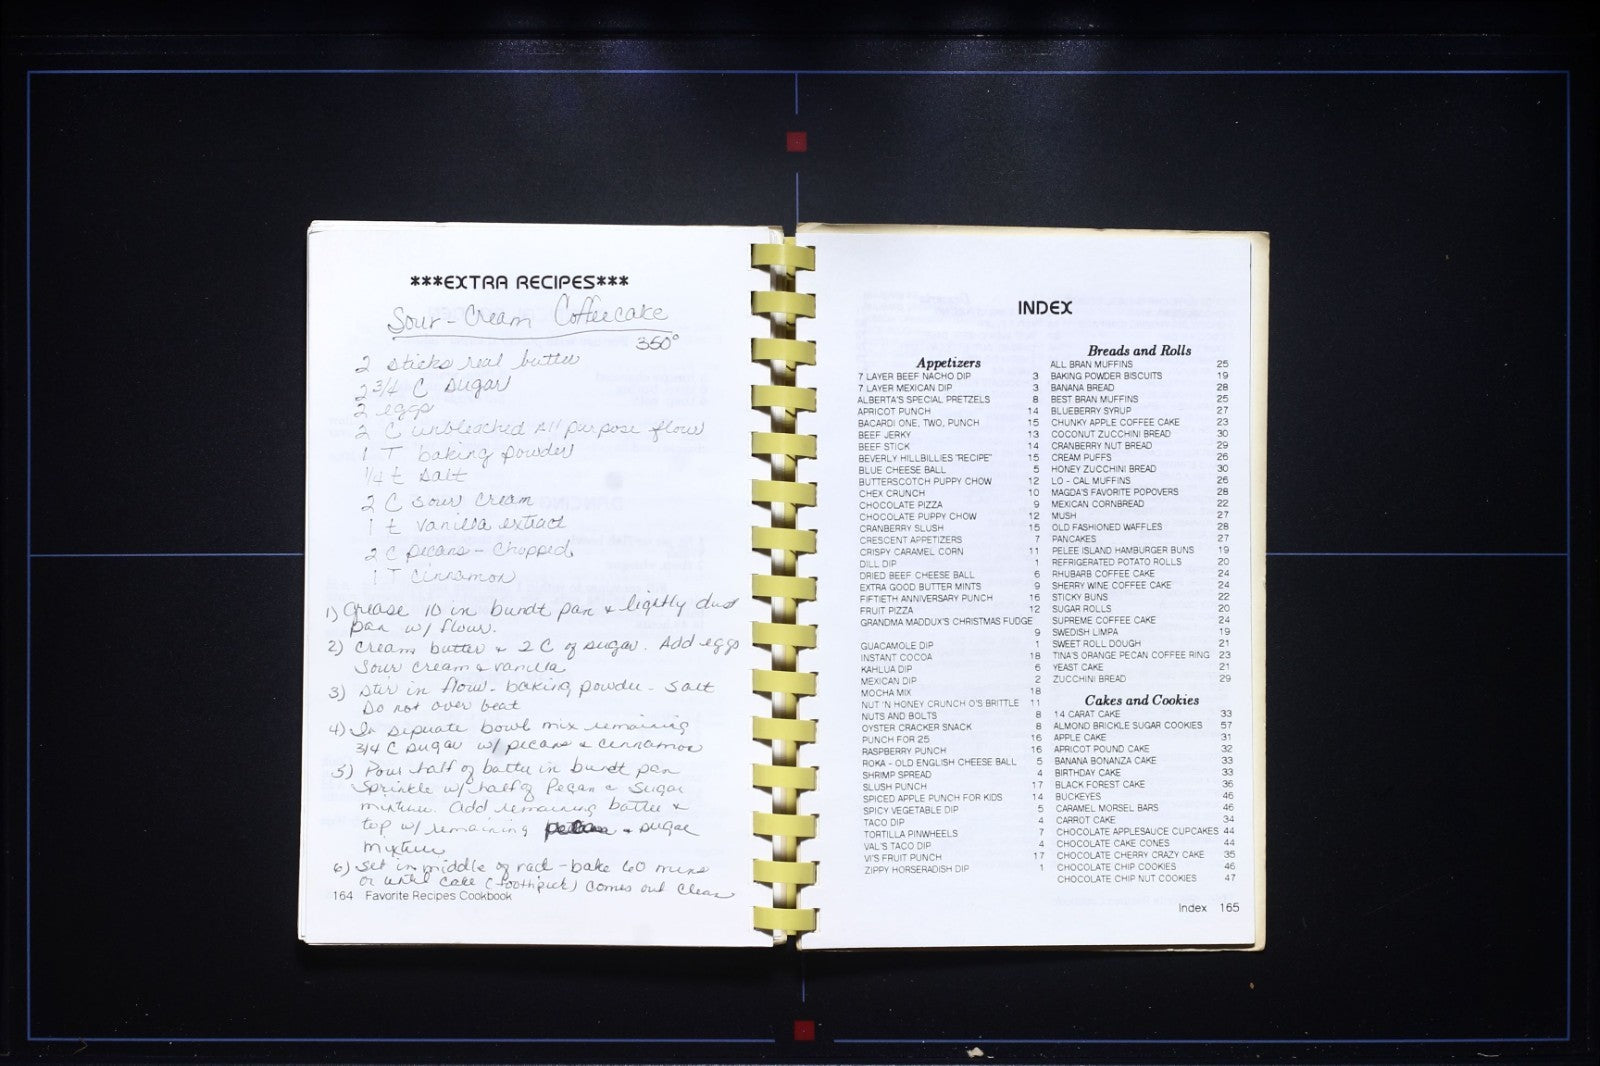 ***EXTRA RECIPES***
Sour-Cream Coffeecake
350°
2 sticks real butter
2 3/4 C sugar
2 eggs
2 C unbleached All purpose flour
1 T baking powder
1/4 t salt
2 C sour cream
1 t vanilla extract
2 C pecans - chopped
1 T cinnamon
1) Grease 10 in bundt pan & lightly dust
pan w/ flour.
2) Cream butter & 2 C of sugar. Add eggs
sour cream & vanilla
3) Stir in flour - baking powder - salt
Do not over beat
4) In seperate bowl mix remaining
3/4 C sugar w/ pecans & cinnamon
5) Pour half of batter in bundt pan
Sprinkle w/ half of Pecan & Sugar
mixture. Add remaining batter &
top w/ remaining & sugar
mixture
6) Set in middle of rack - bake 60 mins
or until cake (toothpick) comes out clean
164 Favorite Recipes Cookbook
INDEX
Appetizers
7 LAYER BEEF NACHO DIP 3
7 LAYER MEXICAN DIP 3
ALBERTA'S SPECIAL PRETZELS 8
APRICOT PUNCH 14
BACARDI ONE, TWO, PUNCH 15
BEEF JERKY 13
BEEF STICK 14
BEVERLY HILLBILLIES "RECIPE" 15
BLUE CHEESE BALL 5
BUTTERSCOTCH PUPPY CHOW 12
CHEX CRUNCH 10
CHOCOLATE PIZZA 9
CHOCOLATE PUPPY CHOW 12
CRANBERRY SLUSH 15
CRESCENT APPETIZERS 7
CRISPY CARAMEL CORN 11
DILL DIP 1
DRIED BEEF CHEESE BALL 6
EXTRA GOOD BUTTER MINTS 9
FIFTIETH ANNIVERSARY PUNCH 16
FRUIT PIZZA 12
GRANDMA MADDUX'S CHRISTMAS FUDGE
9
GUACAMOLE DIP 1
INSTANT COCOA 18
KAHLUA DIP 6
MEXICAN DIP 2
MOCHA MIX 18
NUT 'N HONEY CRUNCH O'S BRITTLE 11
NUTS AND BOLTS 8
OYSTER CRACKER SNACK 8
PUNCH FOR 25 16
RASPBERRY PUNCH 16
ROKA - OLD ENGLISH CHEESE BALL 5
SHRIMP SPREAD 4
SLUSH PUNCH 17
SPICED APPLE PUNCH FOR KIDS 14
SPICY VEGETABLE DIP 5
TACO DIP 4
TORTILLA PINWHEELS 7
VAL'S TACO DIP 4
VI'S FRUIT PUNCH 17
ZIPPY HORSERADISH DIP 1
Breads and Rolls
ALL BRAN MUFFINS 25
BAKING POWDER BISCUITS 19
BANANA BREAD 28
BEST BRAN MUFFINS 25
BLUEBERRY SYRUP 27
CHUNKY APPLE COFFEE CAKE 23
COCONUT ZUCCHINI BREAD 30
CRANBERRY NUT BREAD 29
CREAM PUFFS 26
HONEY ZUCCHINI BREAD 30
LO - CAL MUFFINS 26
MAGDA'S FAVORITE POPOVERS 28
MEXICAN CORNBREAD 22
MUSH 27
OLD FASHIONED WAFFLES 28
PANCAKES 27
PELEE ISLAND HAMBURGER BUNS 19
REFRIGERATED POTATO ROLLS 20
RHUBARB COFFEE CAKE 24
SHERRY WINE COFFEE CAKE 24
STICKY BUNS 22
SUGAR ROLLS 20
SUPREME COFFEE CAKE 24
SWEDISH LIMPA 19
SWEET ROLL DOUGH 21
TINA'S ORANGE PECAN COFFEE RING 23
YEAST CAKE 21
ZUCCHINI BREAD 29
Cakes and Cookies
14 CARAT CAKE 33
ALMOND BRICKLE SUGAR COOKIES 57
APPLE CAKE 31
APRICOT POUND CAKE 32
BANANA BONANZA CAKE 33
BIRTHDAY CAKE 33
BLACK FOREST CAKE 36
BUCKEYES 46
CARAMEL MORSEL BARS 46
CARROT CAKE 34
CHOCOLATE APPLESAUCE CUPCAKES 44
CHOCOLATE CAKE CONES 44
CHOCOLATE CHERRY CRAZY CAKE 35
CHOCOLATE CHIP COOKIES 46
CHOCOLATE CHIP NUT COOKIES 47
Index 165